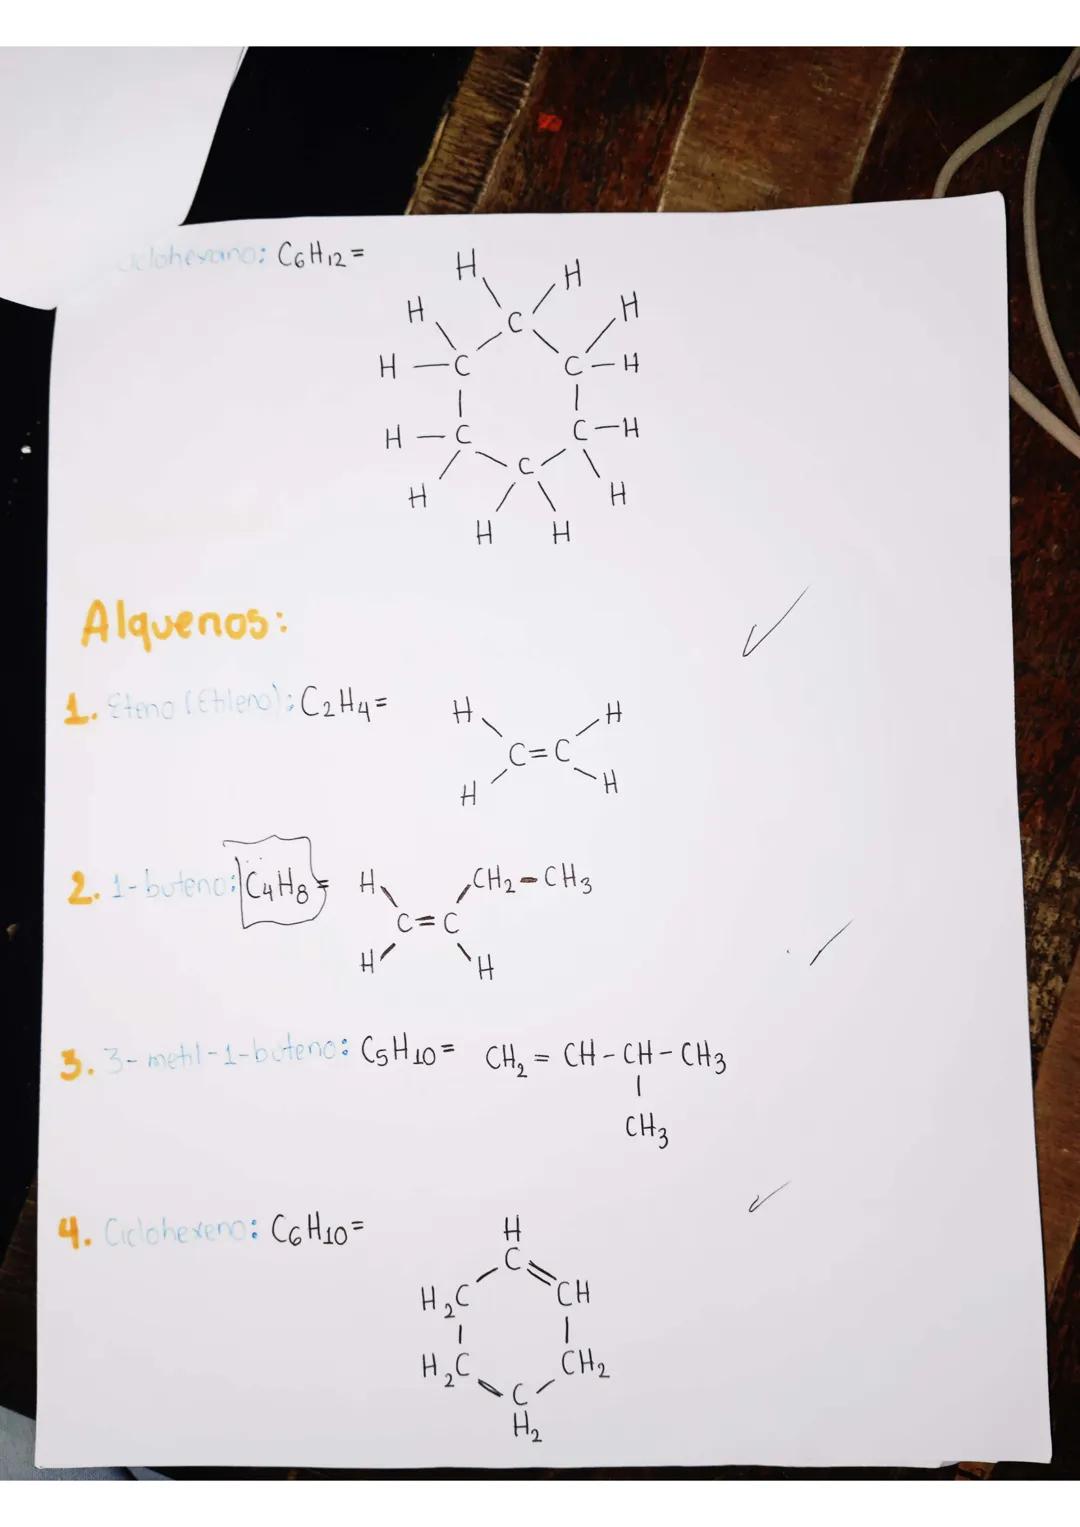 Ciclohexano: C6H12 =
H H
H C H
H — C C — H
H — C C — H
H C H
H H
Alquenos:
1. Eteno (Etileno): C2H4 =
H H
C = C
H H
2. 1-buteno: C4H8 =
H CH2 — CH3
C = C
H H
3. 3-metil-1-buteno: C5H10 = CH2 = CH - CH - CH3
CH3
4. Ciclohexeno: C6H10 =
H
C
H2C CH
H2C CH2
C
H2